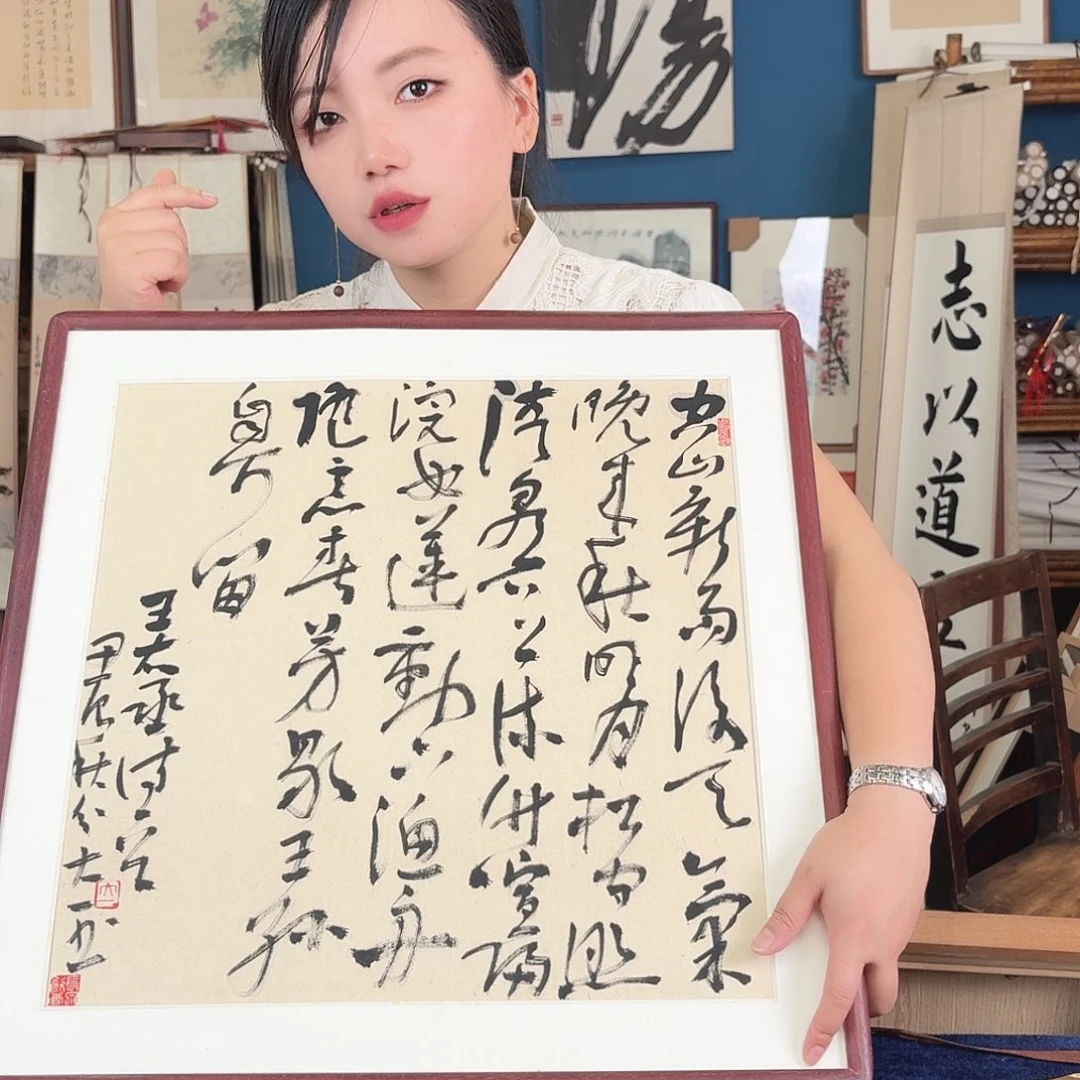 空山新雨後天氣
晚來秋明月松間照
清泉石上流竹喧歸
浣女蓮動下漁舟
隨意春芳歇王孫
自可留
王右丞詩
甲辰秋分大一书
志以道